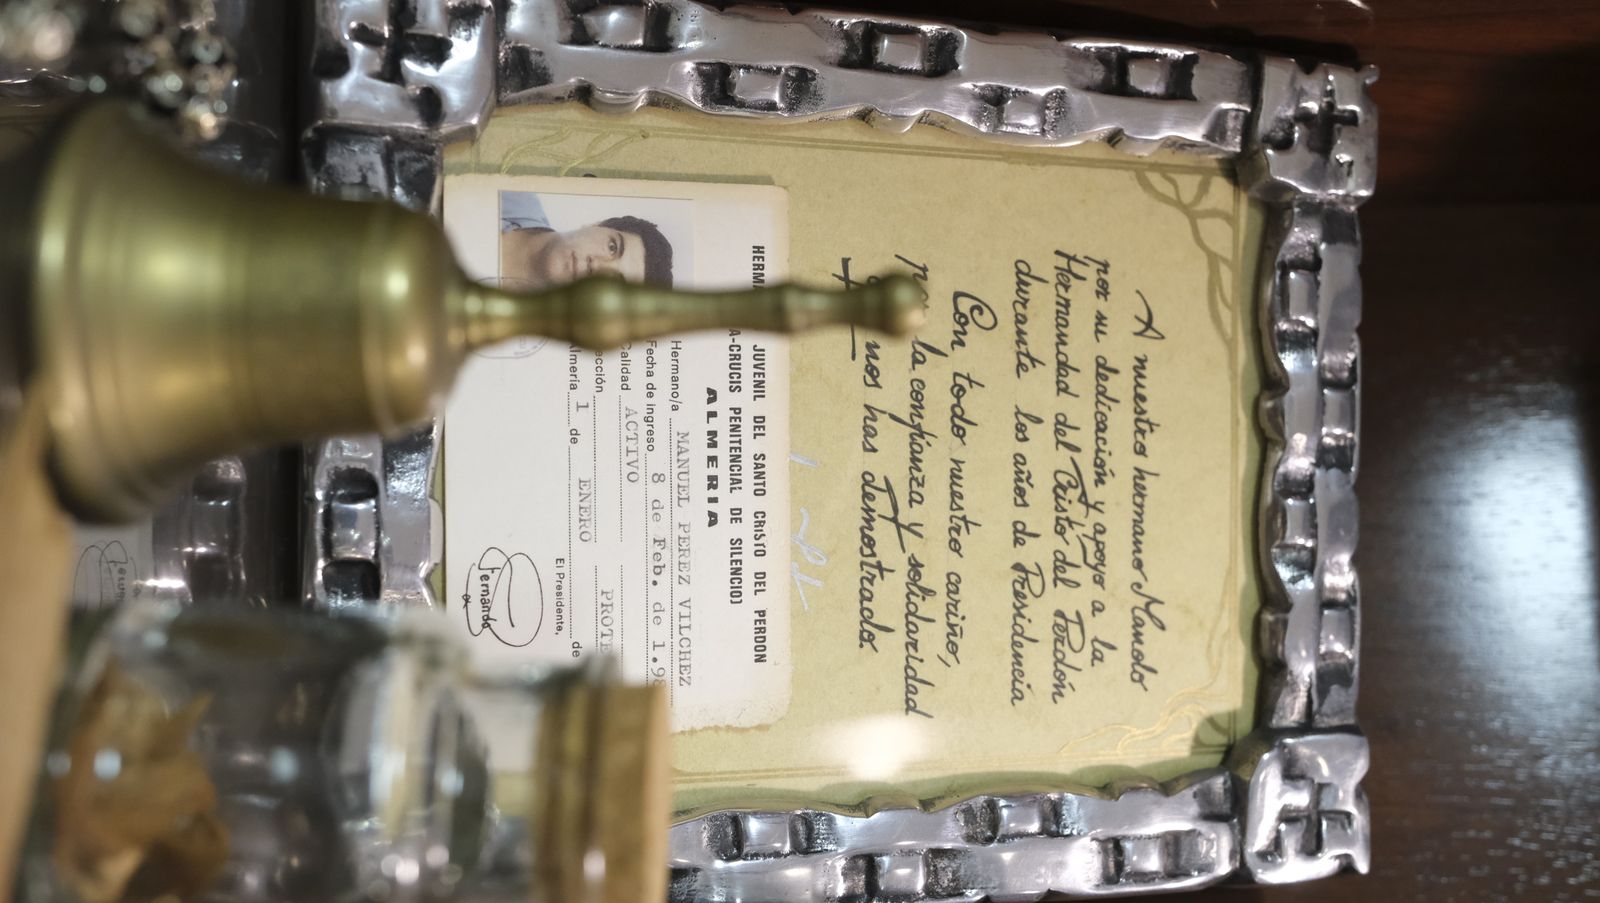 A nuestro hermano Manolo
por su dedicación y apoyo a la
Hermandad del Cristo del Perdón
durante los años de Presidencia
Con todo nuestro cariño,
la confianza y solidaridad
nos has demostrado.
JUVENIL DEL SANTO CRISTO DEL PERDON
A-CRUCIS PENITENCIAL DE SILENCIO)
ALMERIA
Hermano/a MANUEL PEREZ VILCHEZ
Fecha de ingreso 8 de Feb. de 1.98
Calidad ACTIVO
ección PROTE
Almería 1 de ENERO de
El Presidente,
Fernando